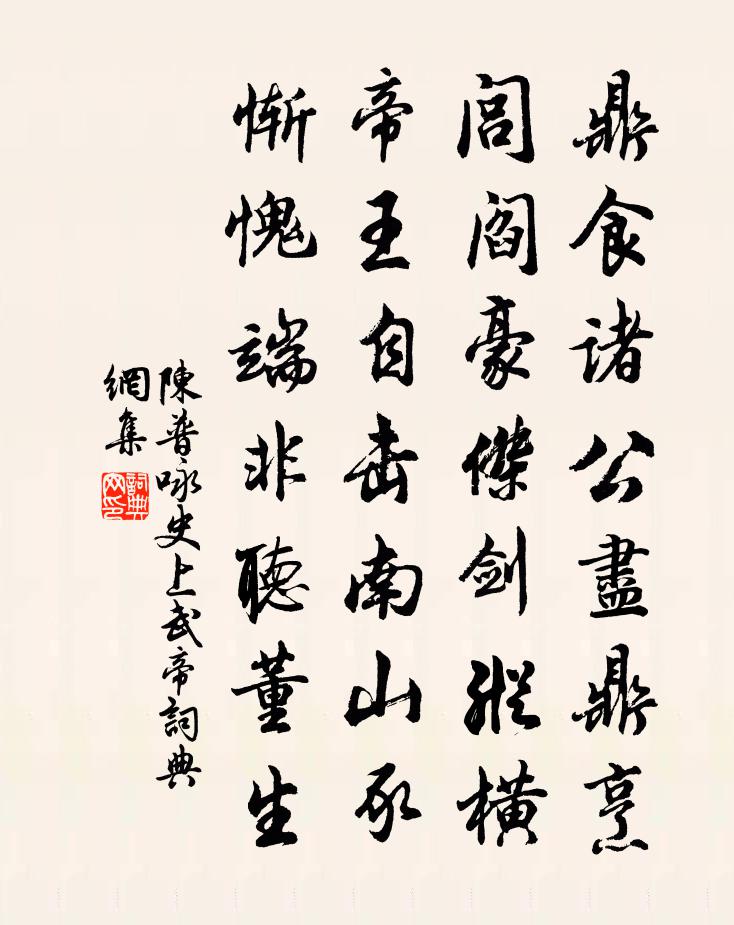 鼎食諸公盡鼎烹
閭閻豪傑劍縱橫
帝王自击南山豕
慚愧端非聽董生
陳普咏史上武帝詞典
網集
詞典
网印